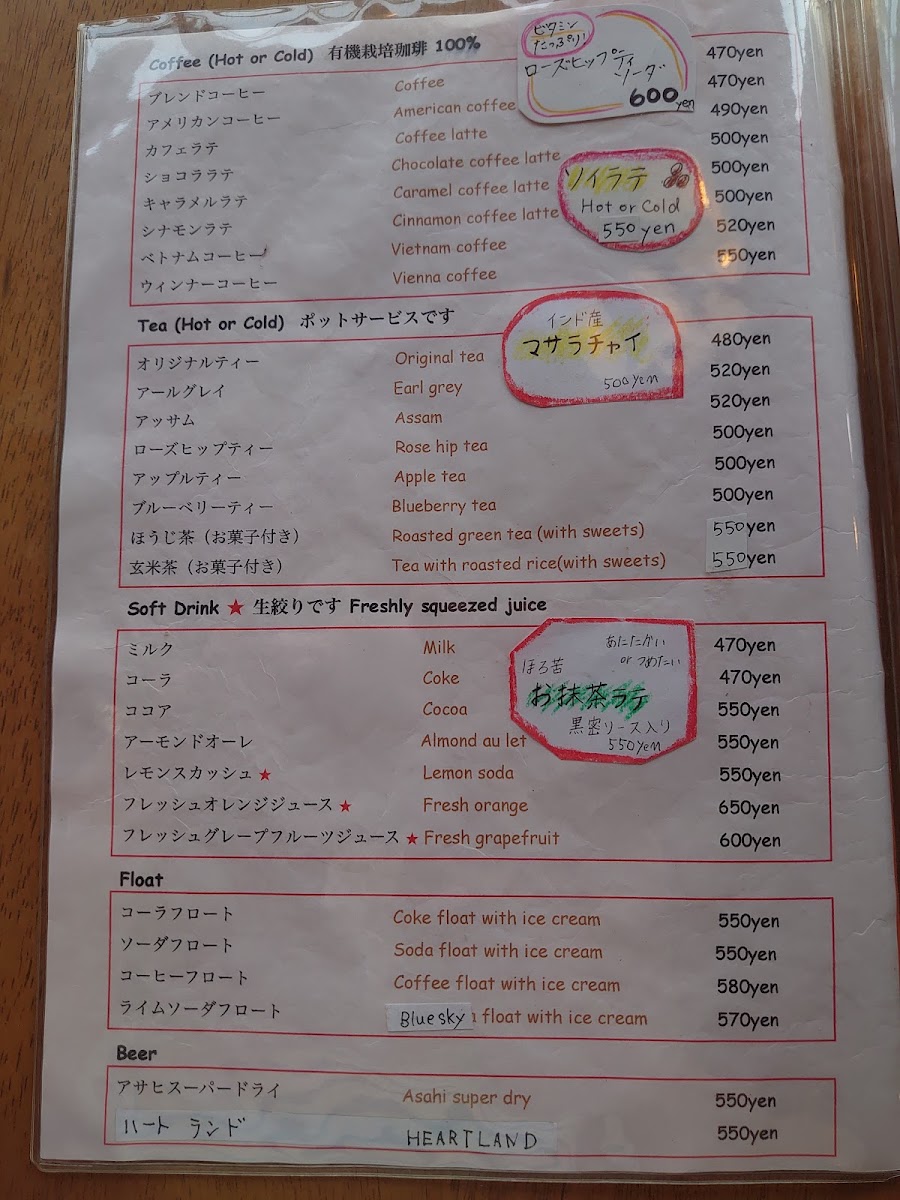 Coffee (Hot or Cold) 有機栽培珈琲 100%
ビタミン
たっぷり!
ローズヒップティ
ソーダ
600yen
ブレンドコーヒー Coffee 470yen
アメリカンコーヒー American coffee 470yen
カフェラテ Coffee latte 490yen
ショコララテ Chocolate coffee latte 500yen
キャラメルラテ Caramel coffee latte 500yen
シナモンラテ Cinnamon coffee latte 500yen
ベトナムコーヒー Vietnam coffee 520yen
ウィンナーコーヒー Vienna coffee 550yen
ソイラテ
Hot or Cold
550yen
Tea (Hot or Cold) ポットサービスです
インド産
マサラチャイ
500yen
オリジナルティー Original tea 480yen
アールグレイ Earl grey 520yen
アッサム Assam 520yen
ローズヒップティー Rose hip tea 500yen
アップルティー Apple tea 500yen
ブルーベリーティー Blueberry tea 500yen
ほうじ茶（お菓子付き） Roasted green tea (with sweets) 550yen
玄米茶（お菓子付き） Tea with roasted rice(with sweets) 550yen
Soft Drink ★ 生絞りです Freshly squeezed juice
あたたかい
or つめたい
ほろ苦
お抹茶ラテ
黒密ソース入り
550yen
ミルク Milk 470yen
コーラ Coke 470yen
ココア Cocoa 550yen
アーモンドオーレ Almond au let 550yen
レモンスカッシュ ★ Lemon soda 550yen
フレッシュオレンジジュース ★ Fresh orange 650yen
フレッシュグレープフルーツジュース ★ Fresh grapefruit 600yen
Float
コーラフロート Coke float with ice cream 550yen
ソーダフロート Soda float with ice cream 550yen
コーヒーフロート Coffee float with ice cream 580yen
ライムソーダフロート Bluesky float with ice cream 570yen
Beer
アサヒスーパードライ Asahi super dry 550yen
ハートランド HEARTLAND 550yen